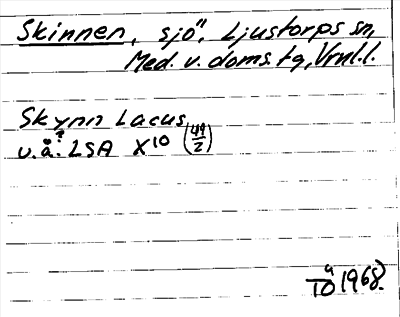 Skinnen, sjö", Ljustorps sn,
Med. v. doms. tg, Vrnl.l.
Skynn Lacus
u.å.? LSA X10 (49/2)
9/10 1968.